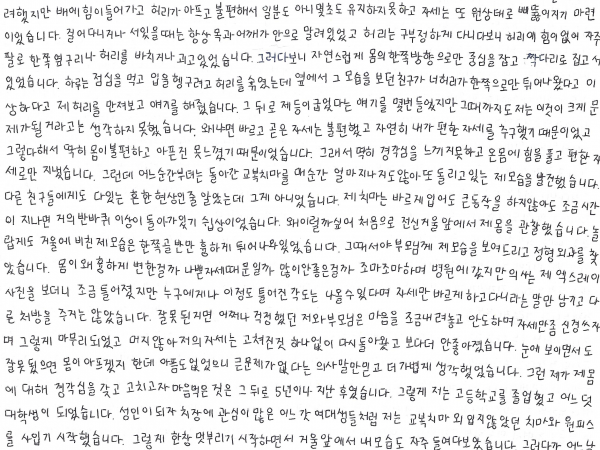 려했지만 배에 힘이 들어가고 허리가 아프고 불편해서 일분도 아니 몇초도 유지하지 못하고 자세는 또 원상태로 삐뚤어지기 마련
이었습니다. 걸어다니거나 서있을 때는 항상 목과 어깨가 안으로 말려있었고 허리는 구부정하게 다니다보니 허리에 힘이 없어 자주
팔로 한쪽 옆구리나 허리를 바치거나 괴고 있었습니다. 그러다보니 자연스럽게 몸의 한쪽방향으로만 중심을 잡고 짝다리로 집고 서
있었습니다. 하루는 점심을 먹고 입을 헹구려고 허리를 숙였는데 옆에서 그 모습을 보던 친구가 너 허리가 한쪽으로만 튀어나왔다고 이
상하다고 제 허리를 만져보고 얘기를 해줬습니다. 그 뒤로 제 등이 굽었다는 얘기를 몇번 들었지만 그때까지도 저는 이것이 크게 문
제가 될 거라고는 생각하지 못했습니다. 왜냐면 바르고 곧은 자세는 불편했고 자연히 내가 편한 자세를 추구했기 때문이었고
그렇다해서 딱히 몸이 불편하고 아픈진 못느꼈기 때문이었습니다. 그래서 딱히 경각심을 느끼지 못하고 온몸에 힘을 풀고 편한 자
세로만 지냈습니다. 그런데 어느순간부터는 돌아간 교복치마를 매순간 얼마 지나지도 않아 또 돌리고 있는 제 모습을 발견했습니다.
다른 친구들에게도 다 있는 흔한 현상인줄 알았는데 그게 아니었습니다. 제 치마는 바르게 입어도 큰 동작을 하지않아도 조금 시간
이 지나면 거의 반바퀴 이상이 돌아가있기 쉽상이었습니다. 왜이럴까 싶어 처음으로 전신거울 앞에서 제 몸을 관찰했습니다. 놀
랍게도 거울에 비친 제 모습은 한쪽 골반만 흉하게 튀어나와있었습니다. 그때서야 부모님께 제 모습을 보여드리고 정형외과를 찾
았습니다. 몸이 왜 흉하게 변한걸까 나쁜자세 때문일까 많이 안좋은걸까 조마조마하며 병원에 갔지만 의사는 제 엑스레이
사진을 보더니 조금 틀어졌지만 누구에게나 이정도 틀어진 각도는 나올 수 있다며 자세만 바르게 하고 다니라는 말만 남기고 다
른 처방을 주지는 않았습니다. 잘못된거면 어쩌나 걱정했던 저와 부모님은 마음을 조금 내려놓고 안도하며 자세만 좀 신경쓰자
며 그렇게 마무리되었고 머지않아 저의 자세는 고쳐진것 하나 없이 다시 돌아왔고 보다 더 안좋아졌습니다. 눈에 보이면서도
잘못됐으면 몸이 아프겠지 한데 아픔도 없었으니 큰 문제가 없다는 의사 말만 믿고 더 가볍게 생각했었습니다. 그런 제가 제 몸
에 대해 경각심을 갖고 고치고자 마음먹은 것은 그 뒤로 5년이나 지난 후였습니다. 그렇게 저는 고등학교를 졸업했고 어느덧
대학생이 되었습니다. 성인이 되자 치장에 관심이 많은 어느 갓 여대생들처럼 저는 교복치마 외 입지 않았던 치마와 원피스
를 사입기 시작했습니다. 그렇게 한창 멋부리기 시작하면서 거울 앞에서 내 모습도 자주 들여다보았습니다. 그러다가 어느날